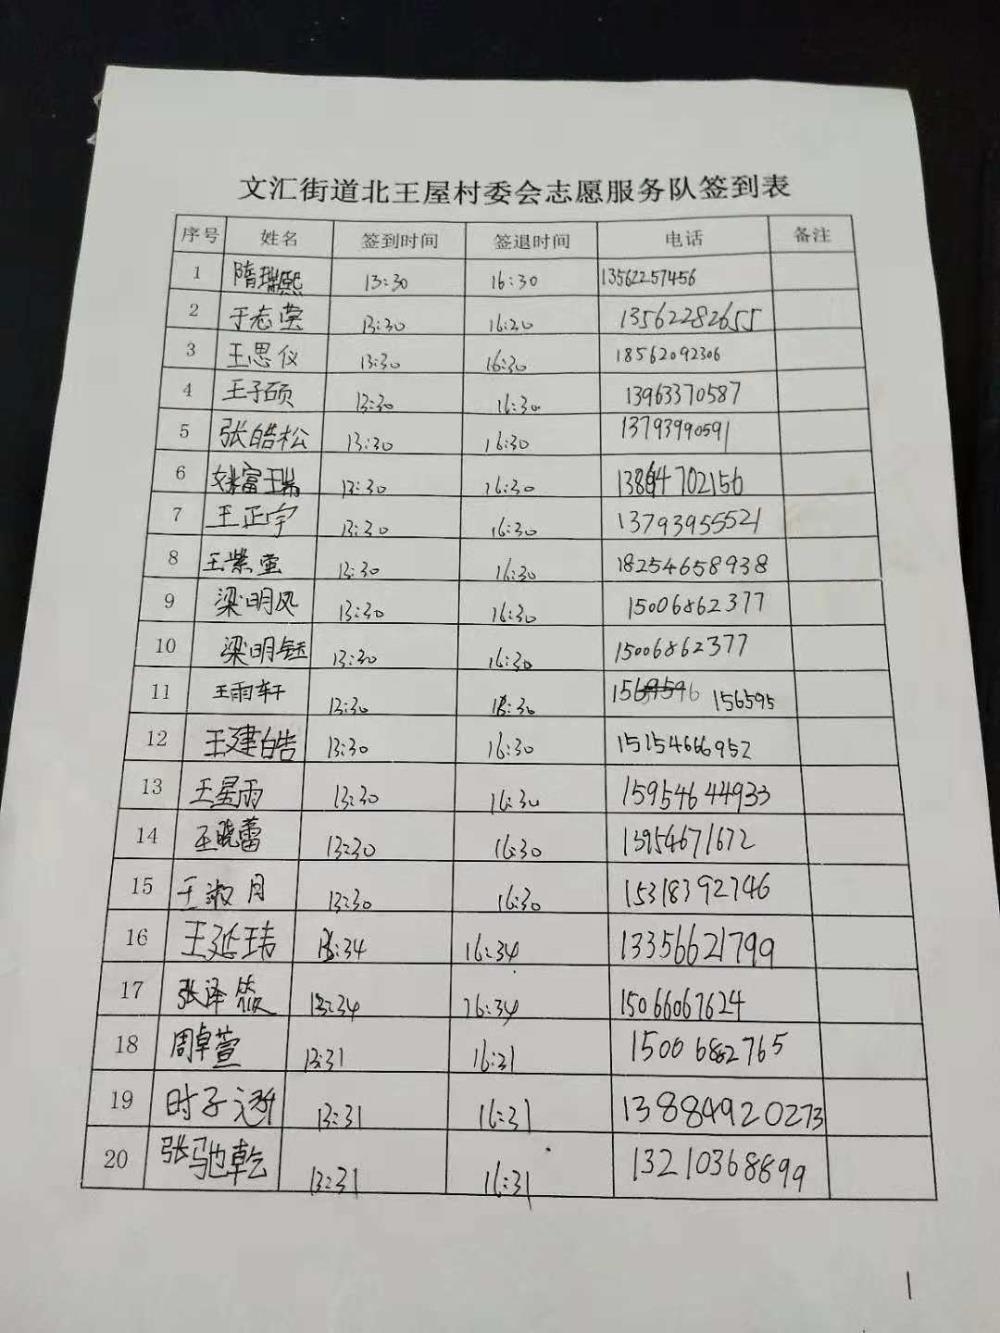 文汇街道北王屋村委会志愿服务队签到表
序号 姓名 签到时间 签退时间 电话 备注
1 隋瑞熙 13:30 16:30 13562257456
2 于志莹 13:30 16:20 13562282655
3 王思仪 13:30 16:30 18562092306
4 王子硕 13:30 16:30 13963370587
5 张皓松 13:30 16:30 13793990591
6 姚富瑞 13:30 16:30 13864702156
7 王正宇 13:30 16:30 13793955521
8 王紫萱 13:30 16:30 18254658938
9 梁明风 13:30 16:30 15006862377
10 梁明钰 13:30 16:30 15006862377
11 王雨轩 13:30 16:30 156595
12 王建皓 13:30 16:30 15154666952
13 王星雨 13:30 16:30 15954644933
14 王晓蕾 13:30 16:30 13954671672
15 王淑月 13:30 16:30 15318392746
16 王延玮 13:34 16:34 13356621799
17 张泽筱 13:34 16:34 15066067624
18 周卓萱 13:31 16:31 15006882765
19 时子 13:31 16:31 13884920273
20 张驰乾 13:31 16:31 13210368899
1